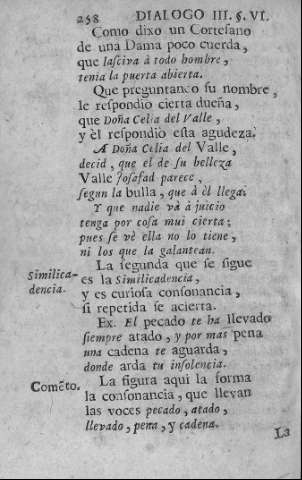 258 DIALOGO III. §. VI.
Como dixo un Cortesano
de una Dama poco cuerda,
que lasciva à todo hombre,
tenia la puerta abierta.
Que preguntanco su nombre,
le respondio cierta dueña,
que Doña Celia del Valle,
y èl respondio esta agudeza.
A Doña Celia del Valle,
decid, que el de su belleza
Valle Josafad parece,
segun la bulla, que à èl llega.
Y que nadie và à juicio
tenga por cosa mui cierta;
pues se vè ella no lo tiene,
ni los que la galantean.
La segunda que se sigue
Similica-
dencia.
es la Similicadencia,
y es curiosa consonancia,
si repetida se acierta.
Ex. El pecado te ha llevado
siempre atado, y por mas pena
una cadena te aguarda,
donde arda tu insolencia.
Comẽto.
La figura aqui la forma
la consonancia, que llevan
las voces pecado, atado,
llevado, pena, y cadena.
La